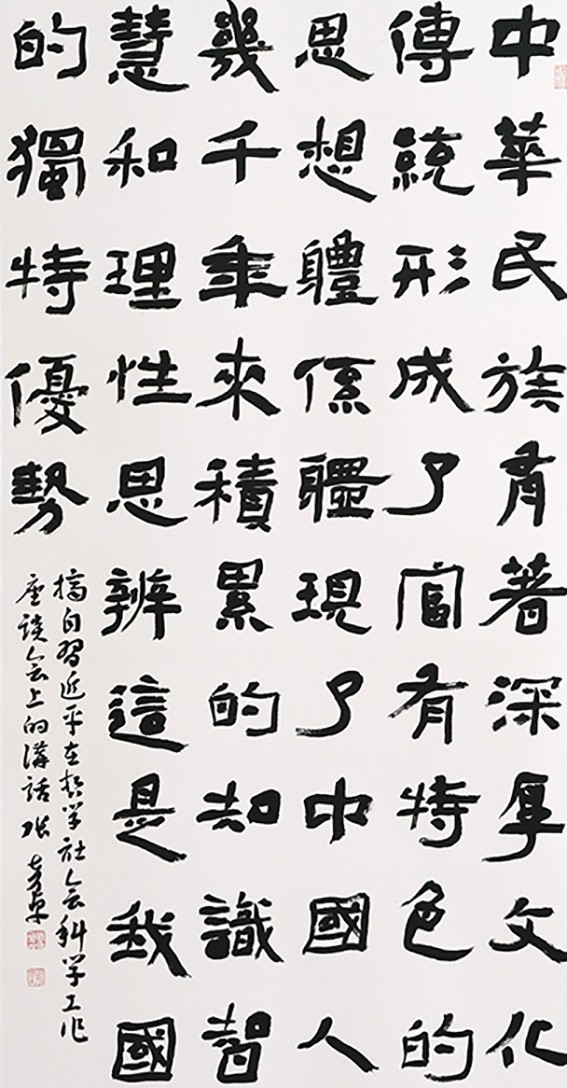 中華民族有著深厚文化
傳統形成了富有特色的
思想體係體現了中國人
幾千年來積累的知識智
慧和理性思辨這是我國
的獨特優勢
摘自習近平在哲学社会科学工作
座談会上的講話 张